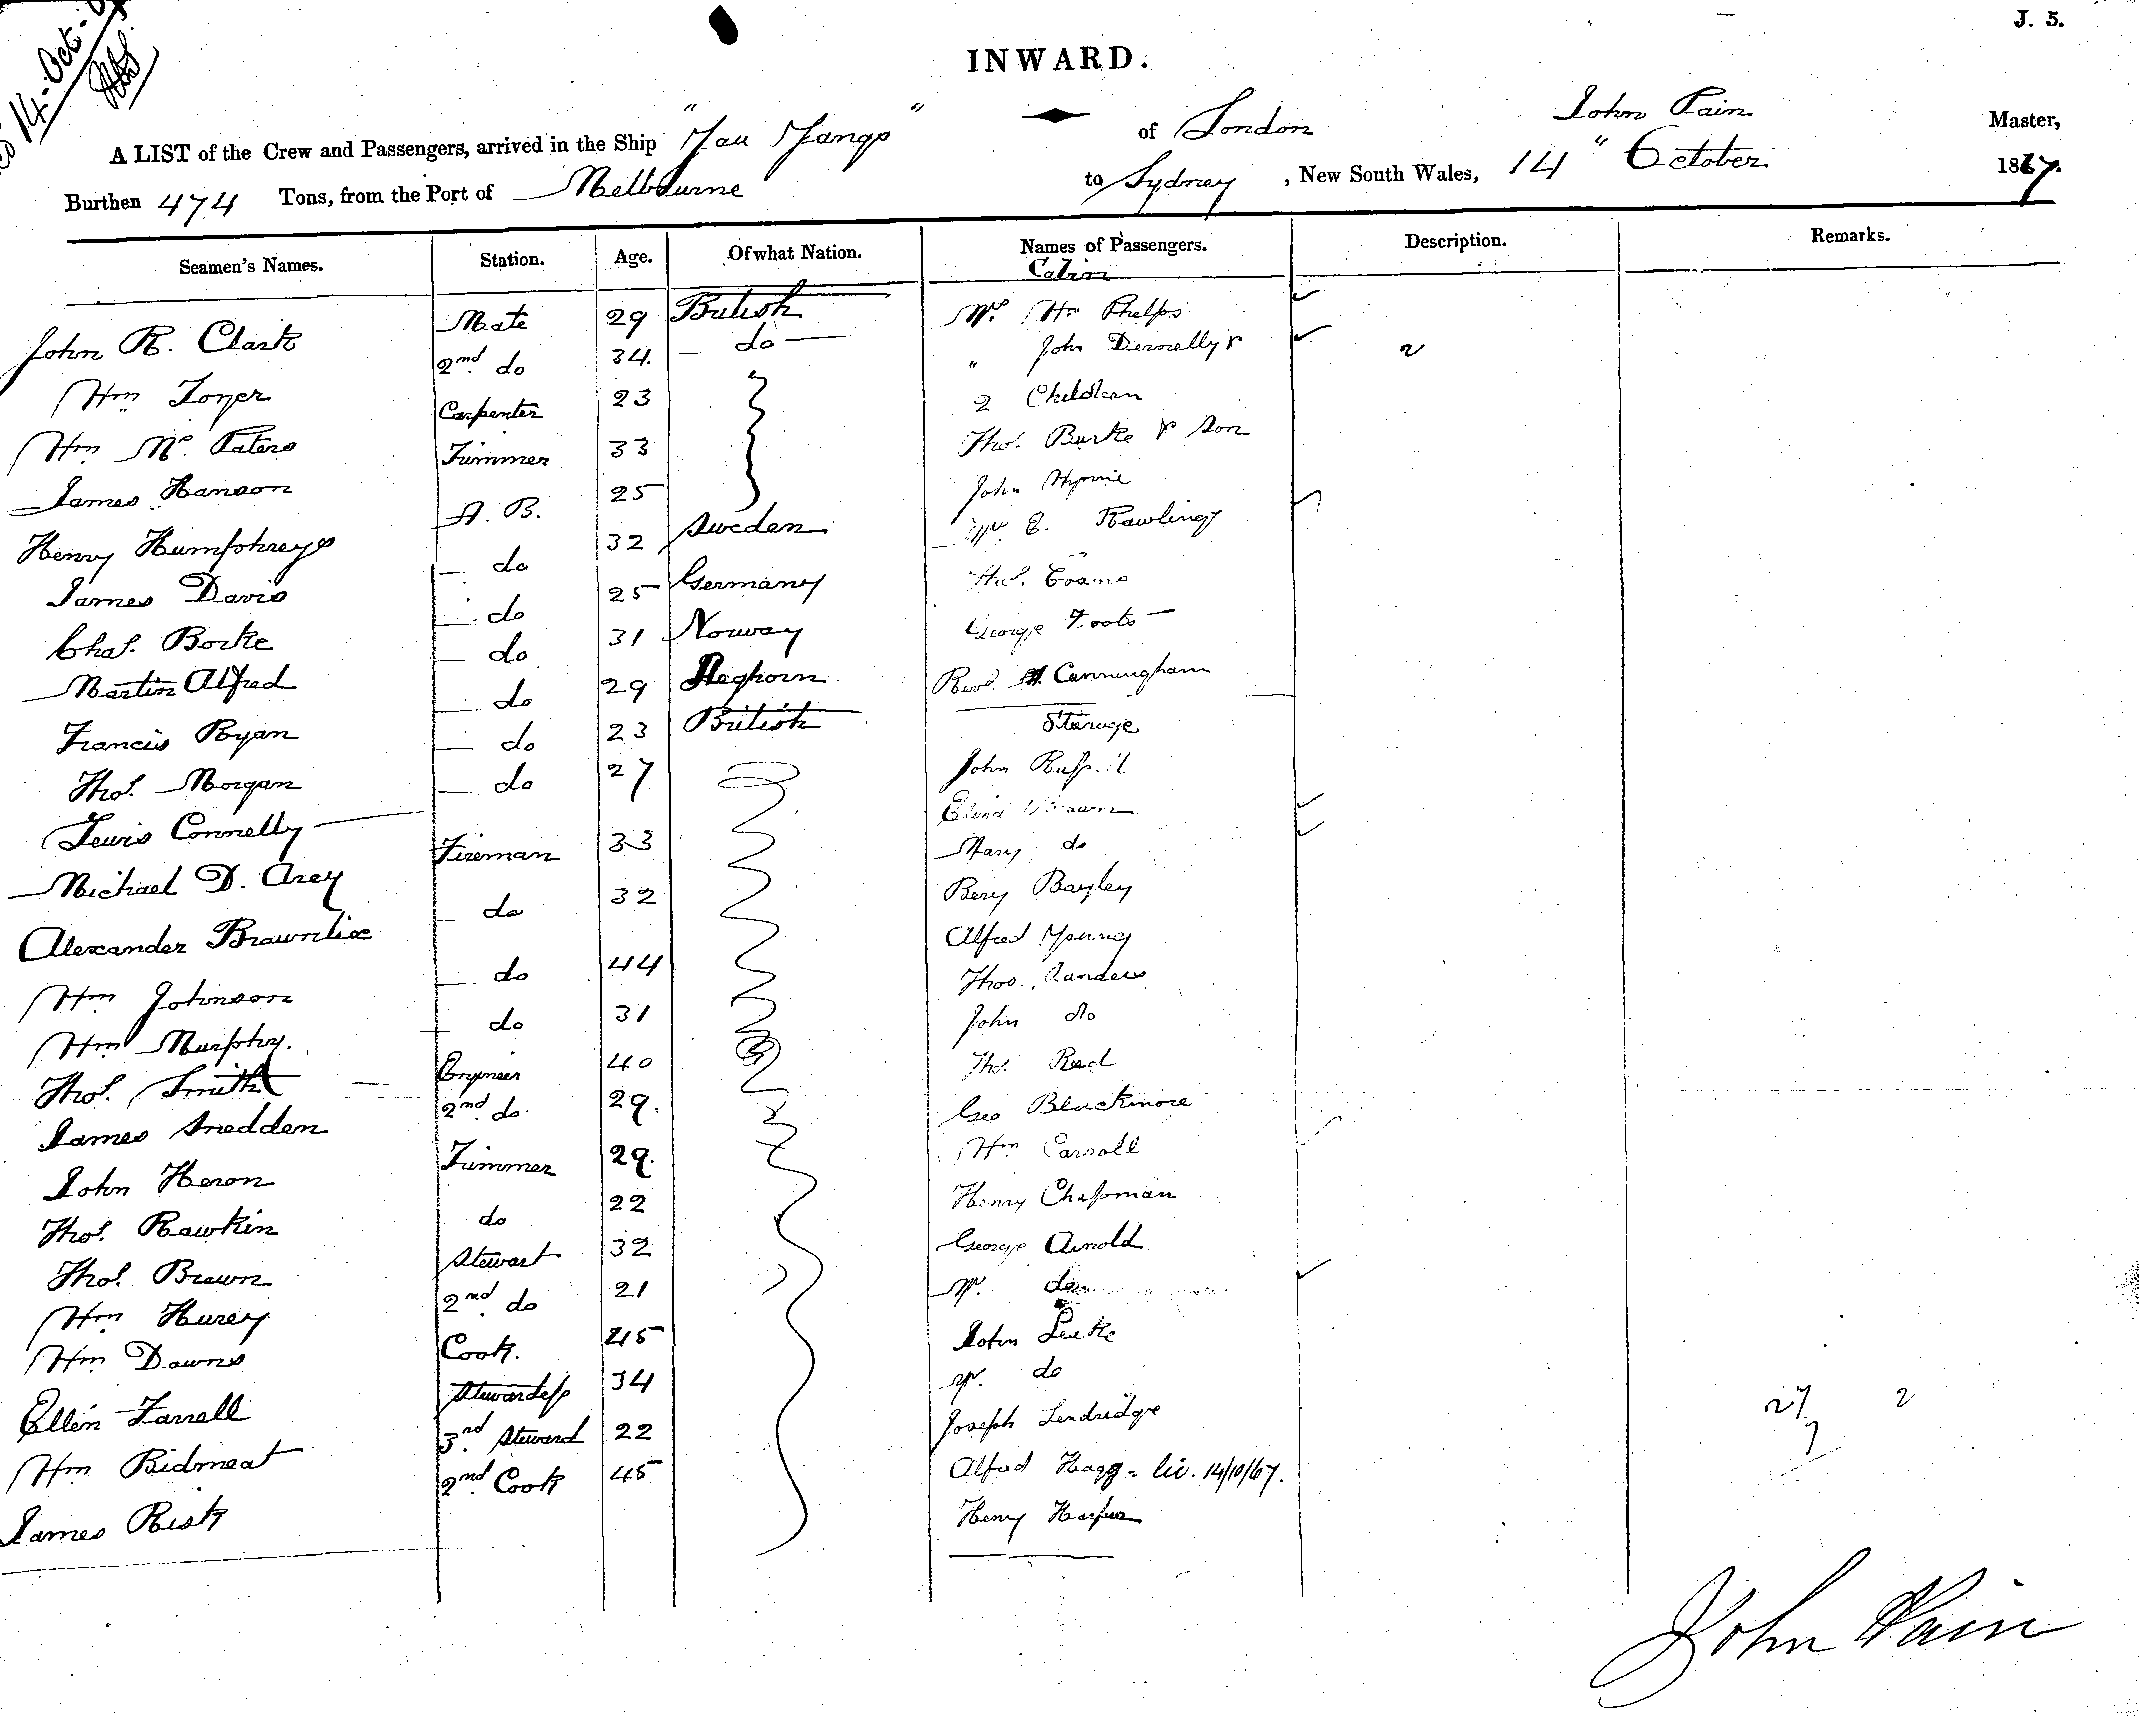 J. 5.
14. Oct.
INWARD.
A LIST of the Crew and Passengers, arrived in the Ship "You Yangs" of London John Pain Master,
Burthen 474 Tons, from the Port of Melbourne to Sydney, New South Wales, 14" October 1867.
Seamen's Names. Station. Age. Of what Nation. Names of Passengers. Description. Remarks.
Cabin
John R. Clark Mate 29 British Mr. Wm Phelps
Wm Toyer 2nd do 34. do " John Dennelly & 2
Wm Mc. Paters Carpenter 23 2 Children
James Hanson Trimmer 33 Thos. Burke & Son
Henry Humphreys A. B. 25 John
James Davis do 32 Sweden E. Rawlings
Chas. Borke do 25 Germany Thos. Evans
Martin Alfred do 31 Norway George Foots
Francis Ryan do 29 Leghorn Revd. Cunningham
Thos. Morgan do 23 British Steerage
Lewis Connelly do 27 John Russell
Michael D. Arey Fireman 33 Mary do
Alexander Brownlie do 32 Benj Bayley
Wm Johnson do 44 Alfred Young
Wm Murphy. do 31 Thos. Sanders
Thos. Smith Engineer 40 John do
James Snedden 2nd do. 29. Thos. Read
John Heron Trimmer 29. Geo Blackmore
Thos. Rawkin do 22 Wm Carroll
Thos. Brown Stewart 32 Henry Chapman
Wm Hurey 2nd do 21 George Arnold
Wm Downs Cook. 45 Mr. do
Ellen Farrell Stewardess 34 John Leeke
Wm Bidmeat 3rd Steward 22 Mr. do
James Risk 2nd Cook 45 Joseph Lendridge
27 2
7
Alfred Hagg - liv. 14/10/67.
Henry Harper
John Pain